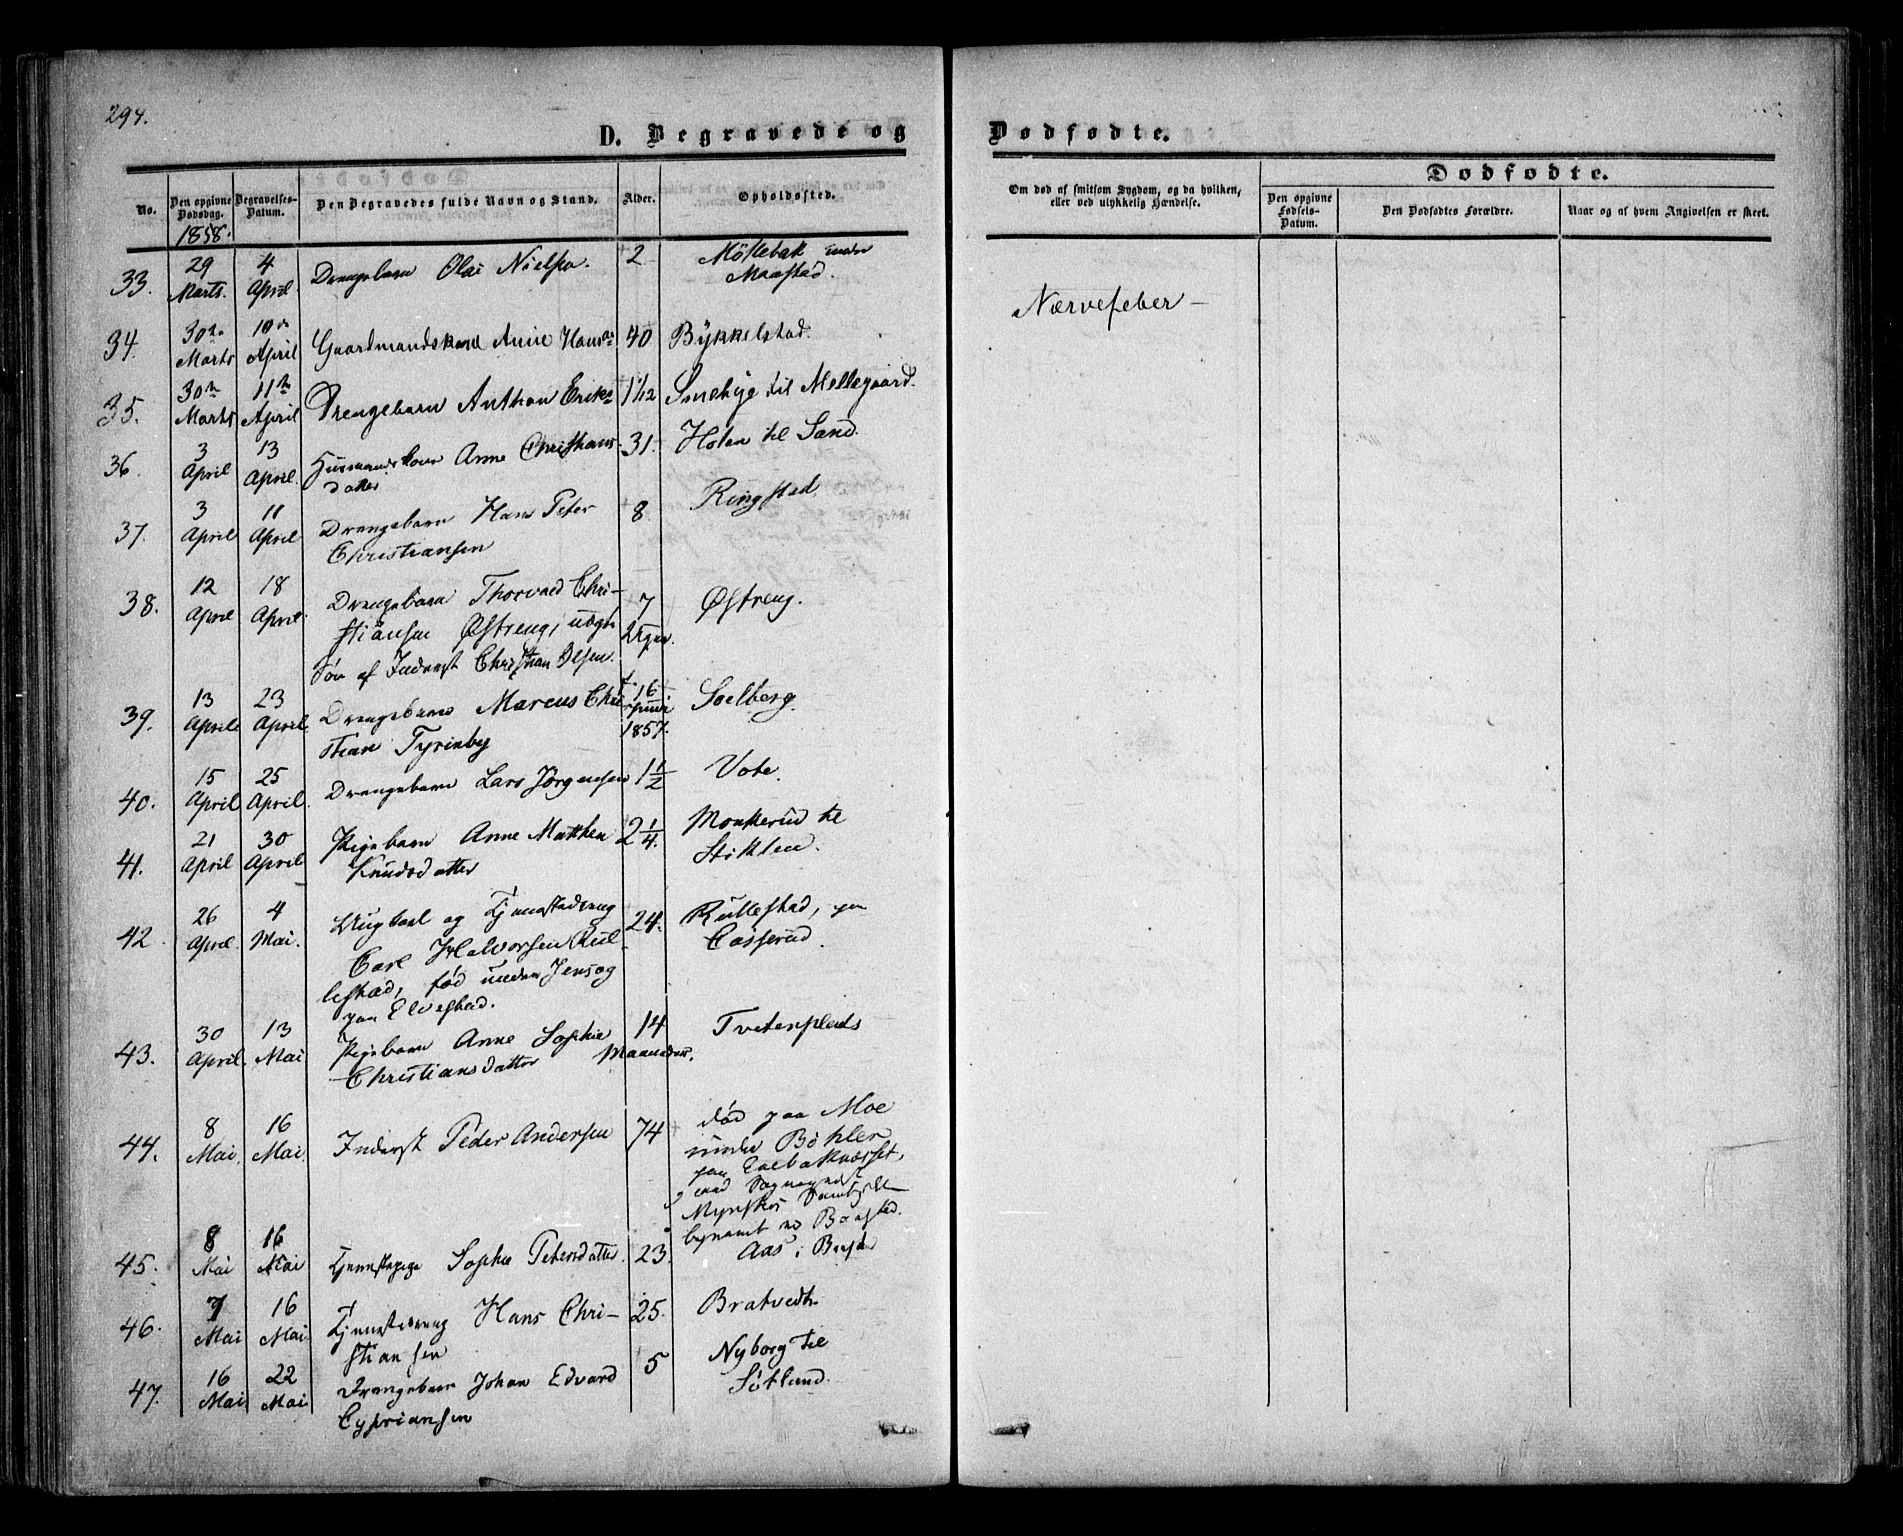 294.
D. Begravede og
Dødfødte.
No.
Den opgivne
Dødsdag.
Begravelses-
Datum.
Den Begravedes fulde Navn og Stand.
Alder.
Opholdssted.
Om død af smitsom Sygdom, og da hvilken,
eller ved ulykkelig Hændelse.
Dødfødte.
Den opgivne
Fødsels-
Datum.
Den Dødfødtes Forældre.
Naar og af hvem Angivelsen er skeet.
1858.
33. 29 Marts. 4 April Drengebarn Olai Nielsen. 2 under
Maastad.
Nærvefeber —
34. 30te Marts 10de April Gaardmandskone Anne Hansd 40 Bykkelstad.
35. 30te Marts 11te April Drengebarn Anthon Eriks 1 1/12 til Mellegaard.
36 3 April 13 April. Huusmandskone Anne Christians- 31. Holen til Sand.
datter
37. 3 April 11 April Drengebarn Hans Peter 8 Ringstad
Christiansen
38. 12 April 18 April Drengebarn Thorvald Chri- 7 Østreng.
stiansen Østreng, uægte
Søn af Inderst Christian Olsen.
39. 13 April 23 April Drengebarn Marcus Chri- 16 Juni 1857. Solberg.
stian Tyrinby
40. 15 April 25 April. Drengebarn Lars Jörgensen 1 1/2 Vote.
41. 21 April 30 April Pigebarn Anne Mathea 2 1/4. Monkerud til
Knudsdatter Stikken.
42 26 April. 4 Mai. Ungkarl og Tjenestedreng 24. Rullestad, paa
Carl Halvorsen Rul- Casserud.
lestad, fød under
paa Elvestad.
43. 30 April. 13 Mai Pigebarn Anne Sophie 14 Maaneder. Tveterplads
Christiansdatter
44. 8 Mai. 16 Mai. Inderst Peder Andersen 74 død paa Moe
under Bøhler
paa Enebaknæsset,
45. 8 Mai 16 Mai Tjenestepige Sophie Petersdatter 23. Aas i
46. 7 Mai 16 Mai Tjenestedreng Hans Chri- 25. Bratvedt
stiansen
47. 16 Mai 22 Mai Drengebarn Johan Edvard 5 Nyborg til
Cypriansen Søtland.